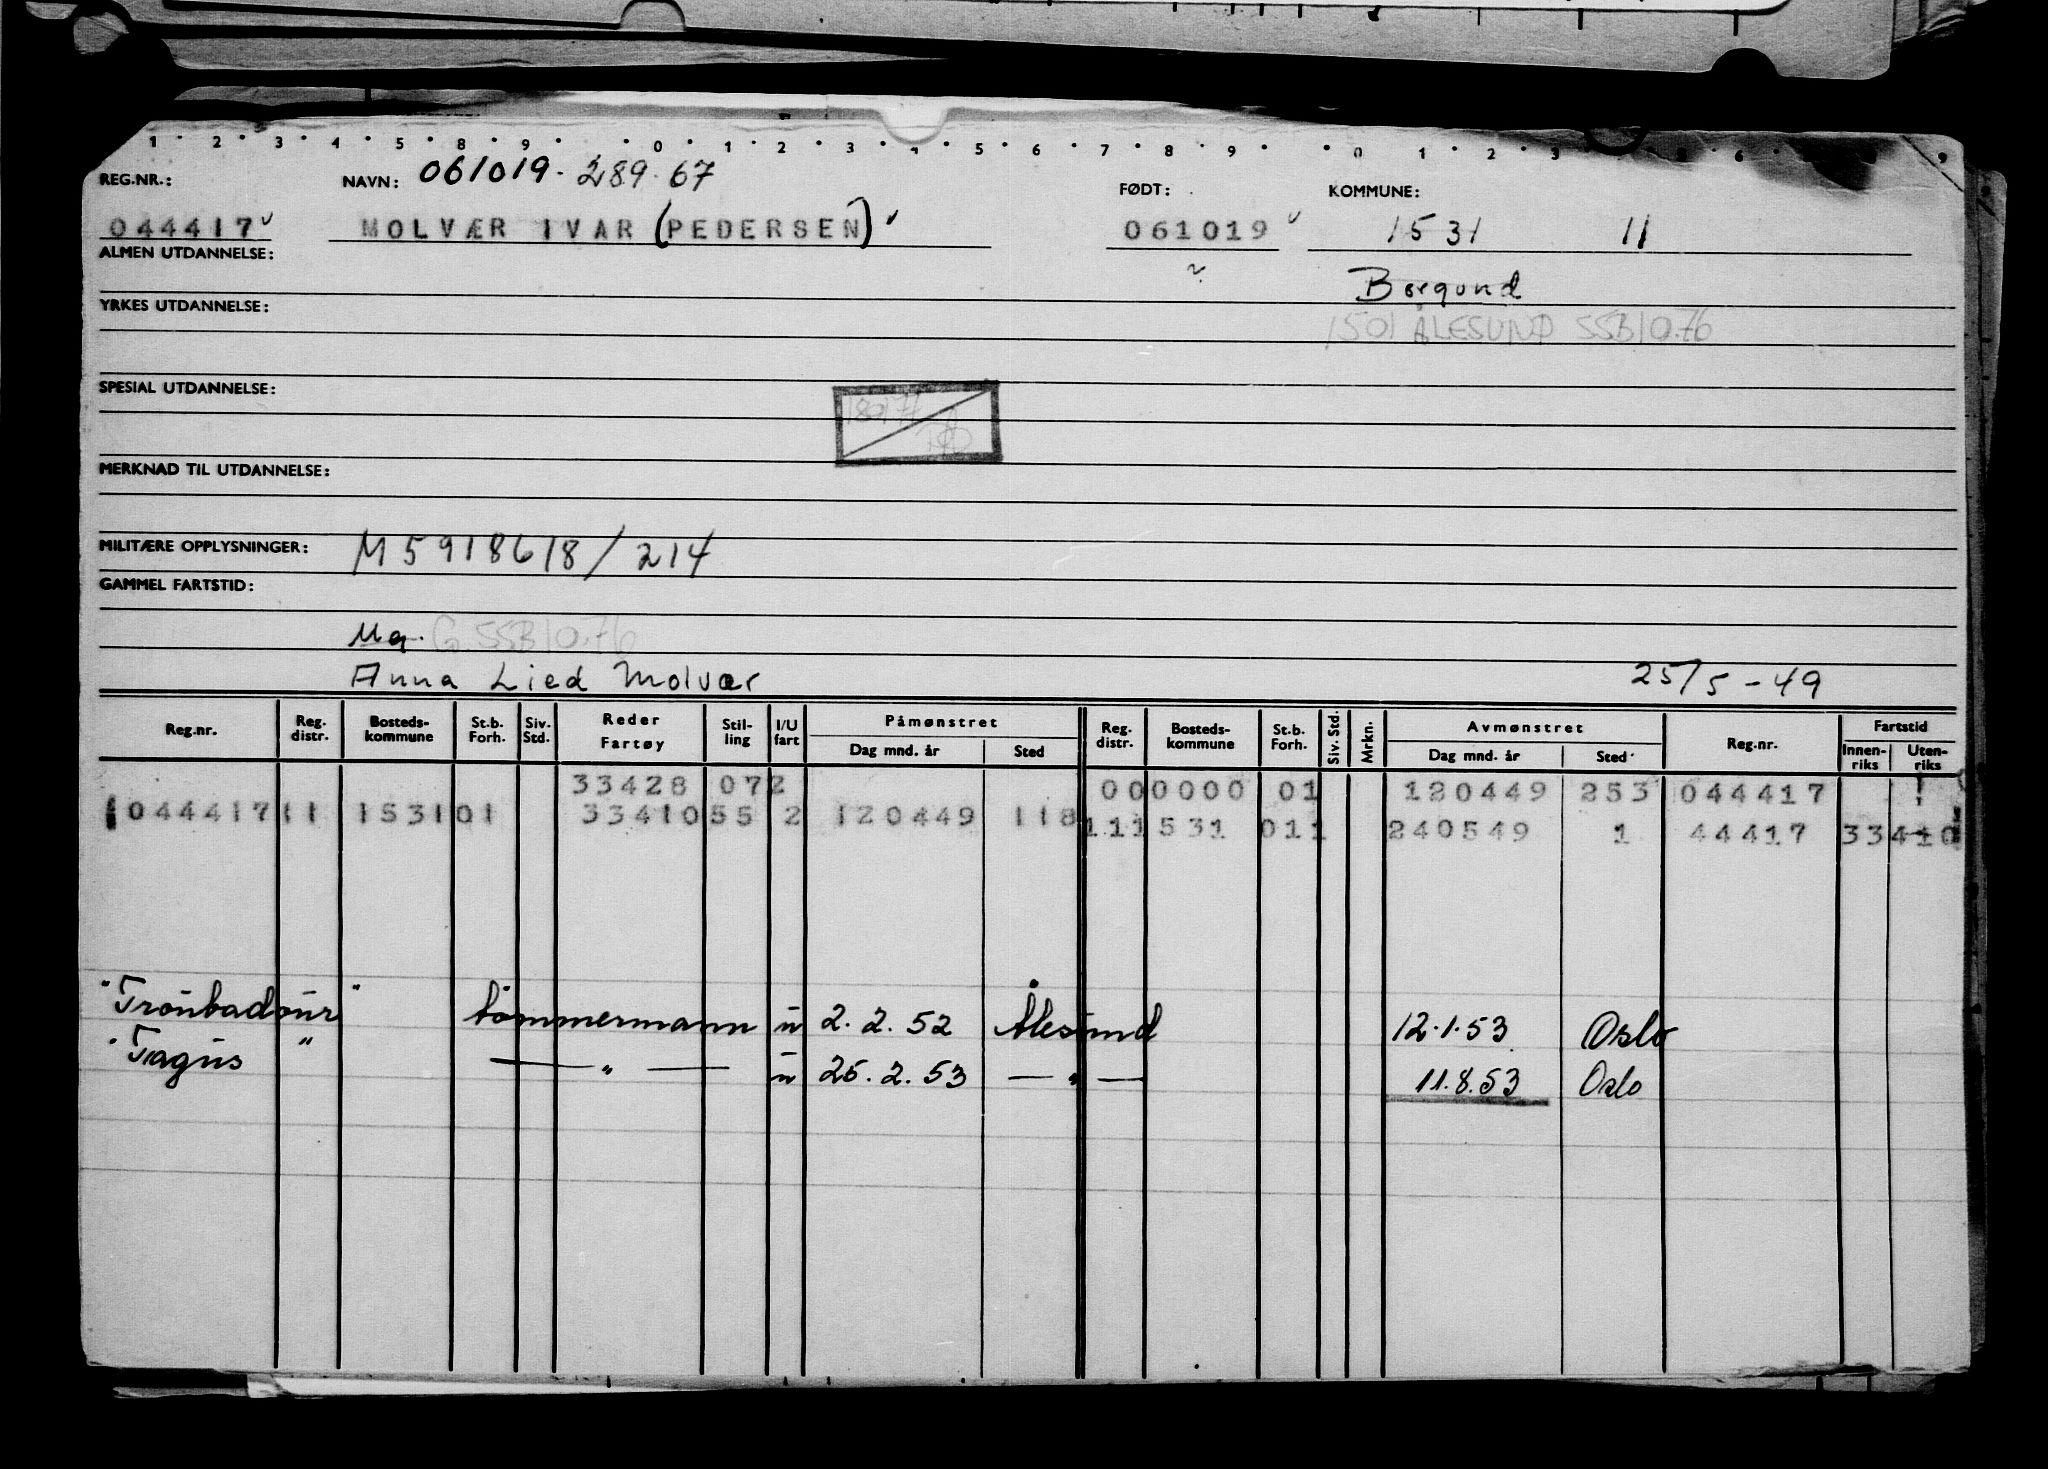 1 2 3 4 5 8 9 0 1 2 3 4 5 6 7 8 9 0 1 2 3 5 6 9
REG.NR.: NAVN: 061019-289-67 FØDT: KOMMUNE:
044417 MOLVÆR IVAR (PEDERSEN) 061019 1531 11
ALMEN UTDANNELSE:
Borgund
YRKES UTDANNELSE:
1501 ÅLESUND SSB10.76
SPESIAL UTDANNELSE:
MERKNAD TIL UTDANNELSE:
MILITÆRE OPPLYSNINGER: M5918618/214
GAMMEL FARTSTID:
G. SSB10.76
Anna Lied Molvær 25/5-49
Reg.nr. Reg. distr. Bosteds-kommune St.b. Forh. Siv. Std. Reder Fartøy Stil-ling I/U fart Påmønstret Dag mnd. år Sted Reg. distr. Bosteds-kommune St.b. Forh. Siv. Std. Mrkn. Avmønstret Dag mnd. år Sted Reg.nr. Fartstid Innen-riks Uten-riks
33428 072 000000 01 120449 253 044417
044417 11 153101 3341055 2 120449 118
111531 011 240549 1 44417 33410
"Troubadour" tømmermann u 2.2.52 Ålesund 12.1.53 Oslo
"Tagus" — " — u 25.2.53 — " — 11.8.53 Oslo